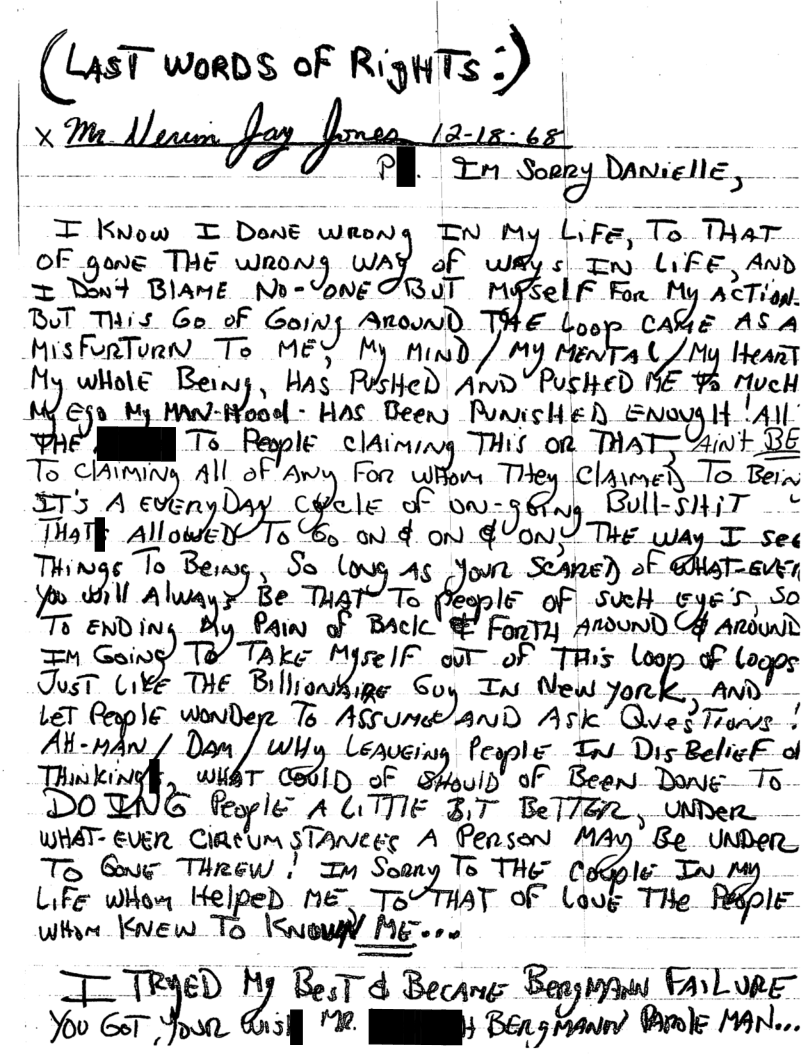 (LAST WORDS OF RIGHTS:)
x Mr. Jay Jones 12-18-68
P. IM SORRY DANIELLE,
I KNOW I DONE WRONG IN MY LIFE, TO THAT
OF gONE THE WRONG WAY OF WAYS IN LIFE, AND
I DON'T BLAME NO-ONE BUT MYSELF FOR MY ACTION.
BUT THIS GO OF GOING AROUND THE LOOP CAME AS A
MISFURTURN TO ME, MY MIND/MY MENTAL/MY HEART
MY WHOLE BEING, HAS PUSHED AND PUSHED ME TO MUCH
MY EGO MY MAN-HOOD- HAS BEEN PUNISHED ENOUGH! ALL
THE TO PEOPLE CLAIMING THIS OR THAT, AIN'T BE
TO CLAIMING ALL OF ANY FOR WHOM THEY CLAIMED TO BEIN
IT'S A EVERYDAY CYCLE OF ON-GOING BULL-SHIT
THAT ALLOWED TO GO ON & ON & ON, THE WAY I SEE
THINGS TO BEING, SO LONG AS YOUR SCARED OF WHAT-EVER
YOU WILL ALWAYS BE THAT TO PEOPLE OF SUCH EYE'S, SO
TO ENDING MY PAIN OF BACK & FORTH AROUND & AROUND
IM GOING TO TAKE MYSELF OUT OF THIS LOOP OF LOOPS
JUST LIKE THE BILLIONAIRE GUY IN NEW YORK, AND
LET PEOPLE WONDER TO ASSUME AND ASK QUESTIONS!
AH-MAN/DAM/WHY LEAVEING PEOPLE IN DISBELIEF OF
THINKING, WHAT COULD OF SHOULD OF BEEN DONE TO
DOING PEOPLE A LITTLE BIT BETTER, UNDER
WHAT-EVER CIRCUMSTANCES A PERSON MAY BE UNDER
TO GONE THREW! IM SORRY TO THE COUPLE IN MY
LIFE WHOM HELPED ME, TO THAT OF LOVE THE PEOPLE
WHOM KNEW TO KNOWN ME...
I TRYED MY BEST & BECAME BERGMANN FAILURE
YOU GOT YOUR WIS MR. H BERGMANN PAROLE MAN...